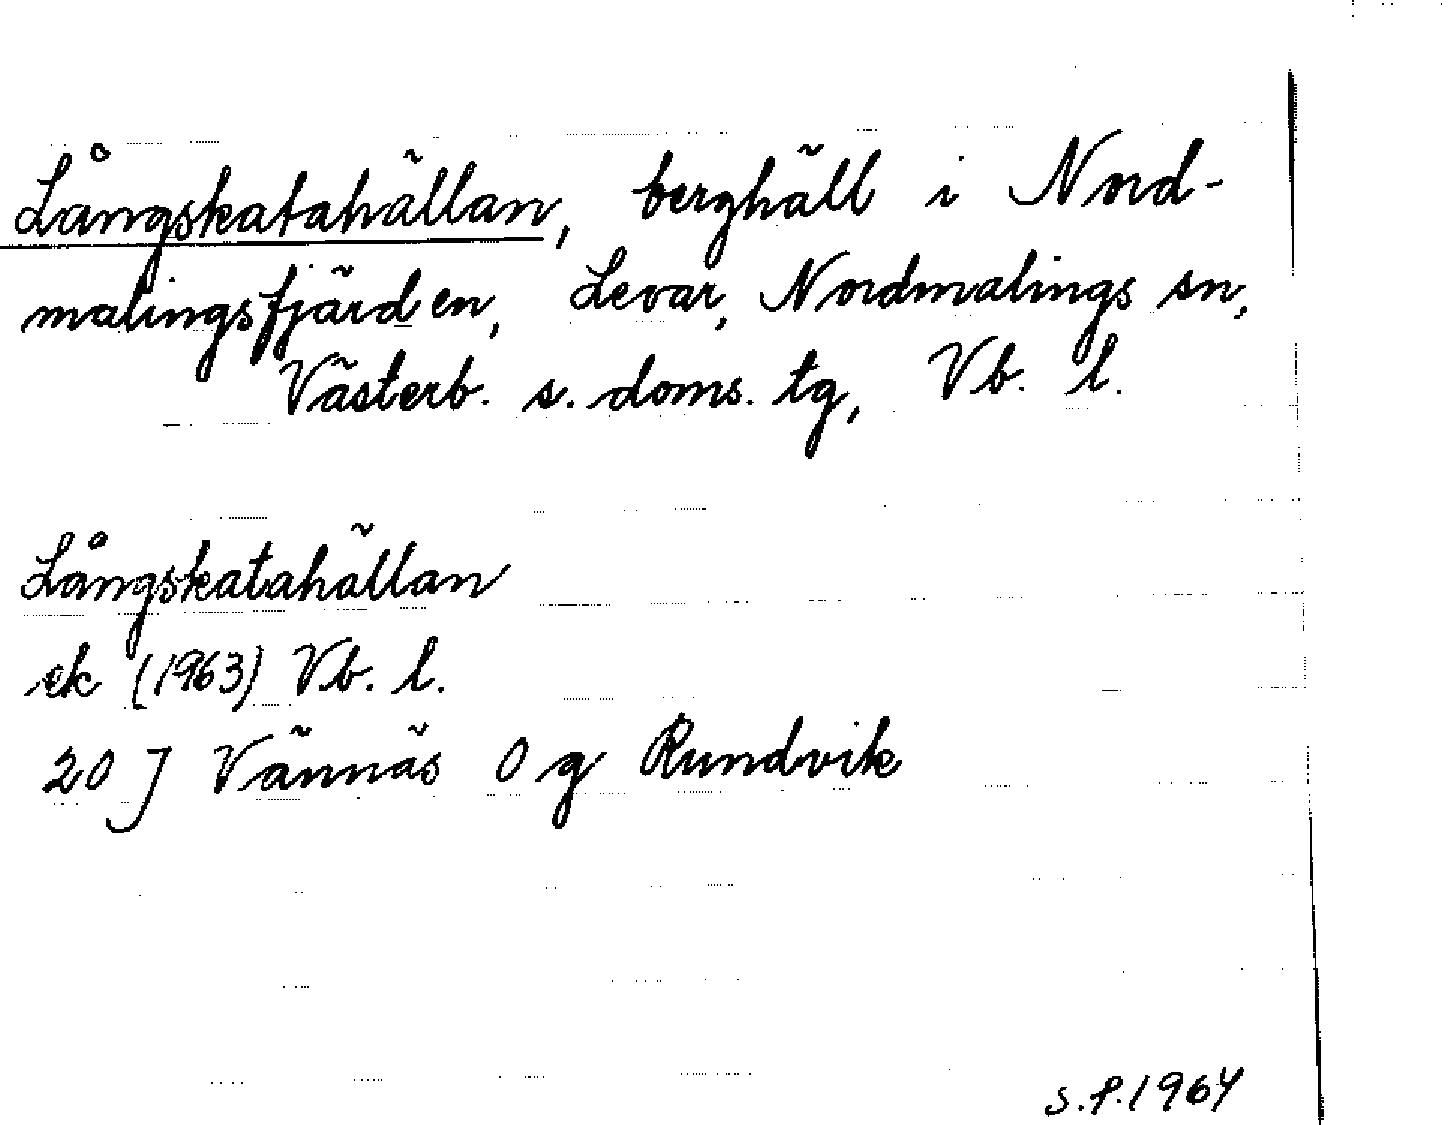 Långskatahällan, berghäll i Nord-
malingsfjärden, Levar, Nordmalings sn,
Västerb. s. doms. tg, Vb. l.
Långskatahällan
ek (1963) Vb. l.
20 J Vännäs 0 g Rundvik
S.P. 1964